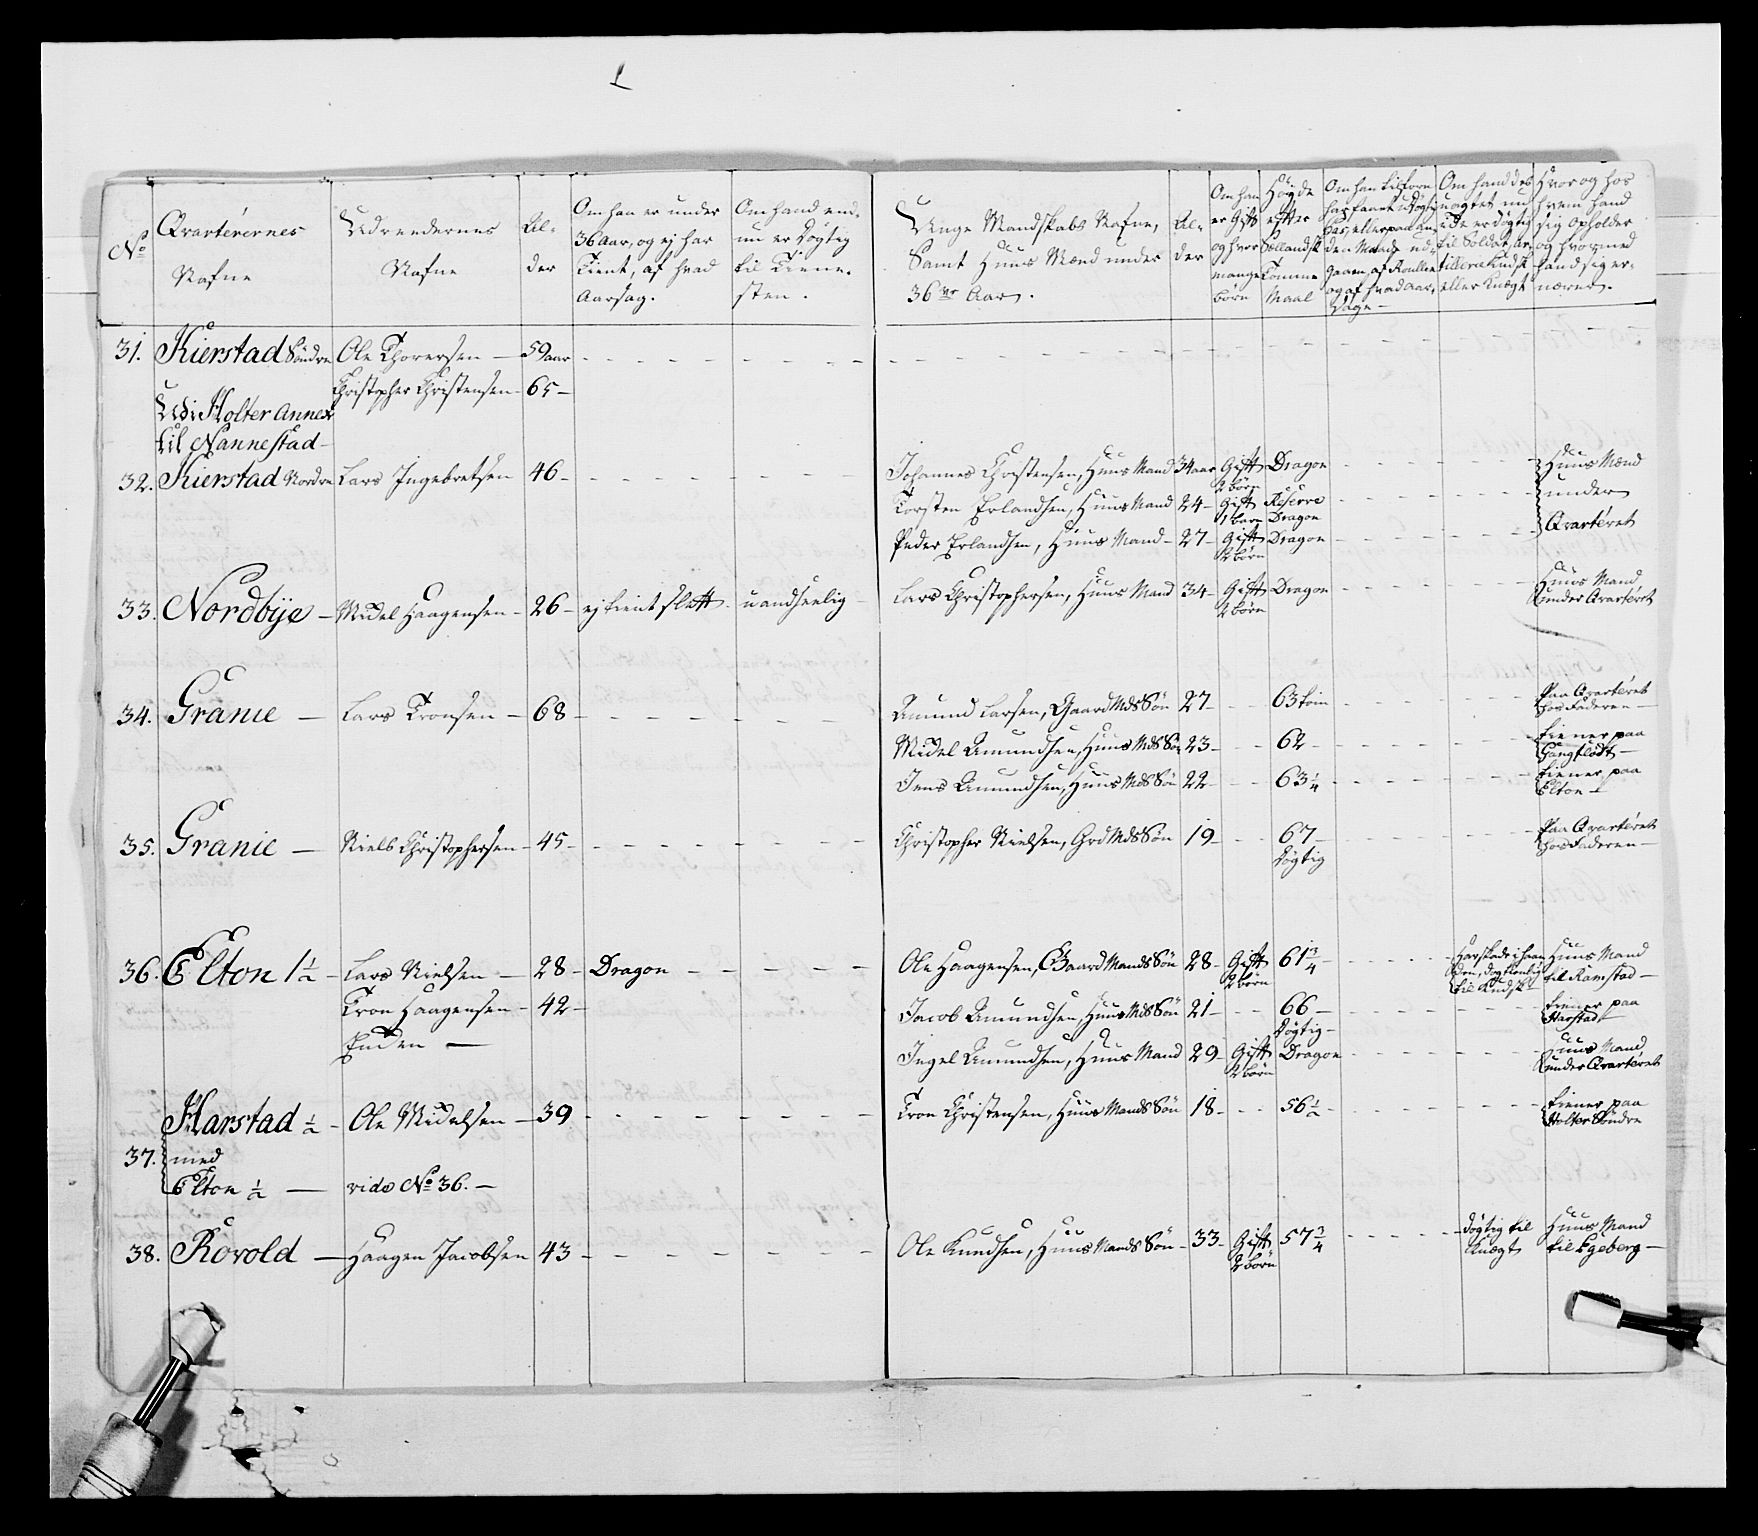 No
Qvarterernes
Nafne
Udreedernes
Nafne
Al-
der
Om han er under
36 Aar, og ej har
Tient, af hvad
Aarsag.
Om hand end-
nu er Døgtig
til Tiene-
sten.
Unge Mandskabs Nafne,
Samt Huus Mænd under
36 ve Aar.
Al-
der
Om han
er Gift
og hvor
mange
børn
Høyde
efter
Siellandsk
Tomme
Maal
Om han tilforn
Om hand des
uagtet nu
til Soldat, ar-
eller Knægt
Hvor og hos
hvem hand
sig opholder
og hvormed
hand sig er-
nærer.
31. Kierstad Søndre Ole Thorersen — 59 aar
Christopher Christensen — 65 —
Udi Holter Annex
til Nannestad —
32. Kierstad Nordre Lars Ingebretsen 46 — Johannes Christensen, Huus Mand 34 aar Gift 2 børn Dragon Huus Mænd
Torsten Erlandsen, Huus Mand 24 — Gift 1 barn Reserve Dragon under
Peder Erlandsen, Huus Mand — 27 — Gift 2 børn Dragon Qvarteret
33. Nordbÿe — Midel Haagensen — 26 — ej tient slett uandseelig Lars Christophersen, Huus Mand 34 — Gift 2 børn Dragon Huus Mand
under Qvarteret
34. Granie — Lars Tronsen — 68 — Amund Larsen, Gaard Mds Søn 27 — 63 tom Paa Qvarteret
hos Faderen —
Midel Amundsen, Huus Mds Søn 23 — 62 tiener paa
Jens Amundsen, Huus Mds Søn 22 — 63 1/4 tiener paa
Elton —
35. Granie — Niels Christophersen — 45 — Christopher Nielsen, Grd Mds Søn 19 — 67 — Paa Qvarteret
Døgtig hos Faderen —
36. Elton 1 1/2 — Lars Nielsen — 28 — Dragon Ole Haagensen, Gaard Mands Søn 28 — Gift 2 børn 61 3/4 Har skade i haan
til Kudsk Huus Mand
til Ramstad —
Tron Haagensen — 42 — Jacob Amundsen, Huus Mds Søn 21 — 66 — tiener paa
Enken — Døgtig — Harstad
Ingel Amundsen, Huus Mand 29 — Gift 2 børn Dragon Huus Mand
under Qvarteret
Harstad 1/2 — Ole Midelsen — 39 Tron Christensen, Huus Mands Søn 18 — 56 1/2 tiener paa
Holter Søndre
37. med
Elton 1/2 — vide No 36. —
38. Rovold — Haagen Jacobsen 43 — Ole Knudsen, Huus Mands Søn — 33 — Gift 2 børn 57 3/4 døgtig til
Knægt Huus Mand
til Egeberg —